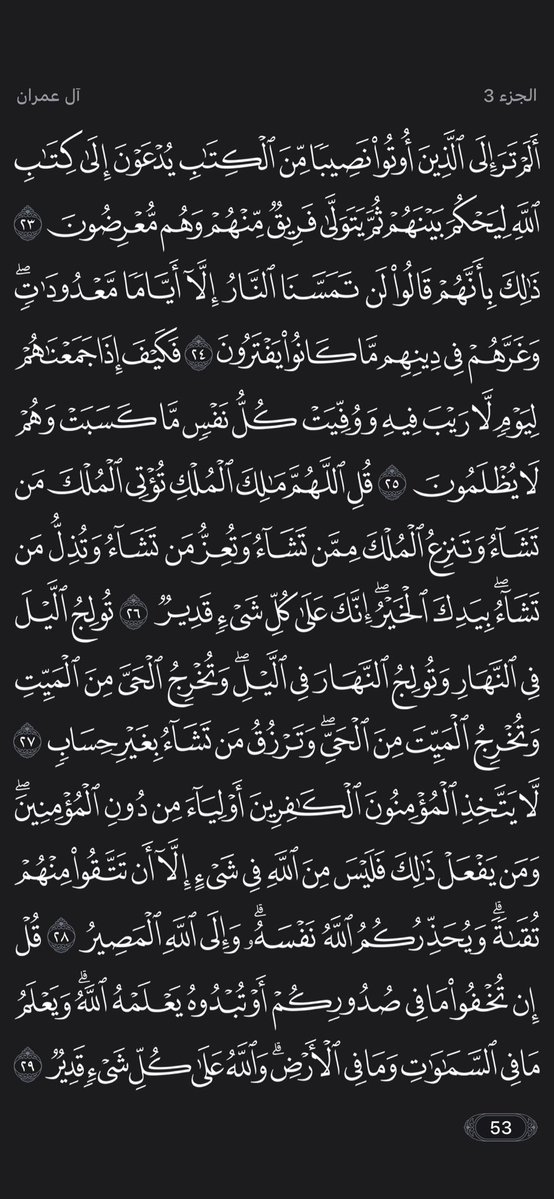 الجزء 3
آل عمران
أَلَمْ تَرَ إِلَى ٱلَّذِينَ أُوتُوا۟ نَصِيبًا مِّنَ ٱلْكِتَٰبِ يُدْعَوْنَ إِلَىٰ كِتَٰبِ
ٱللَّهِ لِيَحْكُمَ بَيْنَهُمْ ثُمَّ يَتَوَلَّىٰ فَرِيقٌ مِّنْهُمْ وَهُم مُّعْرِضُونَ ٢٣
ذَٰلِكَ بِأَنَّهُمْ قَالُوا۟ لَن تَمَسَّنَا ٱلنَّارُ إِلَّآ أَيَّامًا مَّعْدُودَٰتٍ ۖ
وَغَرَّهُمْ فِى دِينِهِم مَّا كَانُوا۟ يَفْتَرُونَ ٢٤ فَكَيْفَ إِذَا جَمَعْنَٰهُمْ
لِيَوْمٍ لَّا رَيْبَ فِيهِ وَوُفِّيَتْ كُلُّ نَفْسٍ مَّا كَسَبَتْ وَهُمْ
لَا يُظْلَمُونَ ٢٥ قُلِ ٱللَّهُمَّ مَٰلِكَ ٱلْمُلْكِ تُؤْتِى ٱلْمُلْكَ مَن
تَشَآءُ وَتَنزِعُ ٱلْمُلْكَ مِمَّن تَشَآءُ وَتُعِزُّ مَن تَشَآءُ وَتُذِلُّ مَن
تَشَآءُ ۖ بِيَدِكَ ٱلْخَيْرُ ۖ إِنَّكَ عَلَىٰ كُلِّ شَىْءٍ قَدِيرٌ ٢٦ تُولِجُ ٱلَّيْلَ
فِى ٱلنَّهَارِ وَتُولِجُ ٱلنَّهَارَ فِى ٱلَّيْلِ ۖ وَتُخْرِجُ ٱلْحَىَّ مِنَ ٱلْمَيِّتِ
وَتُخْرِجُ ٱلْمَيِّتَ مِنَ ٱلْحَىِّ ۖ وَتَرْزُقُ مَن تَشَآءُ بِغَيْرِ حِسَابٍ ٢٧
لَّا يَتَّخِذِ ٱلْمُؤْمِنُونَ ٱلْكَٰفِرِينَ أَوْلِيَآءَ مِن دُونِ ٱلْمُؤْمِنِينَ ۖ
وَمَن يَفْعَلْ ذَٰلِكَ فَلَيْسَ مِنَ ٱللَّهِ فِى شَىْءٍ إِلَّآ أَن تَتَّقُوا۟ مِنْهُمْ
تُقَىٰةً ۗ وَيُحَذِّرُكُمُ ٱللَّهُ نَفْسَهُۥ ۗ وَإِلَى ٱللَّهِ ٱلْمَصِيرُ ٢٨ قُلْ
إِن تُخْفُوا۟ مَا فِى صُدُورِكُمْ أَوْ تُبْدُوهُ يَعْلَمْهُ ٱللَّهُ ۗ وَيَعْلَمُ
مَا فِى ٱلسَّمَٰوَٰتِ وَمَا فِى ٱلْأَرْضِ ۗ وَٱللَّهُ عَلَىٰ كُلِّ شَىْءٍ قَدِيرٌ ٢٩
53